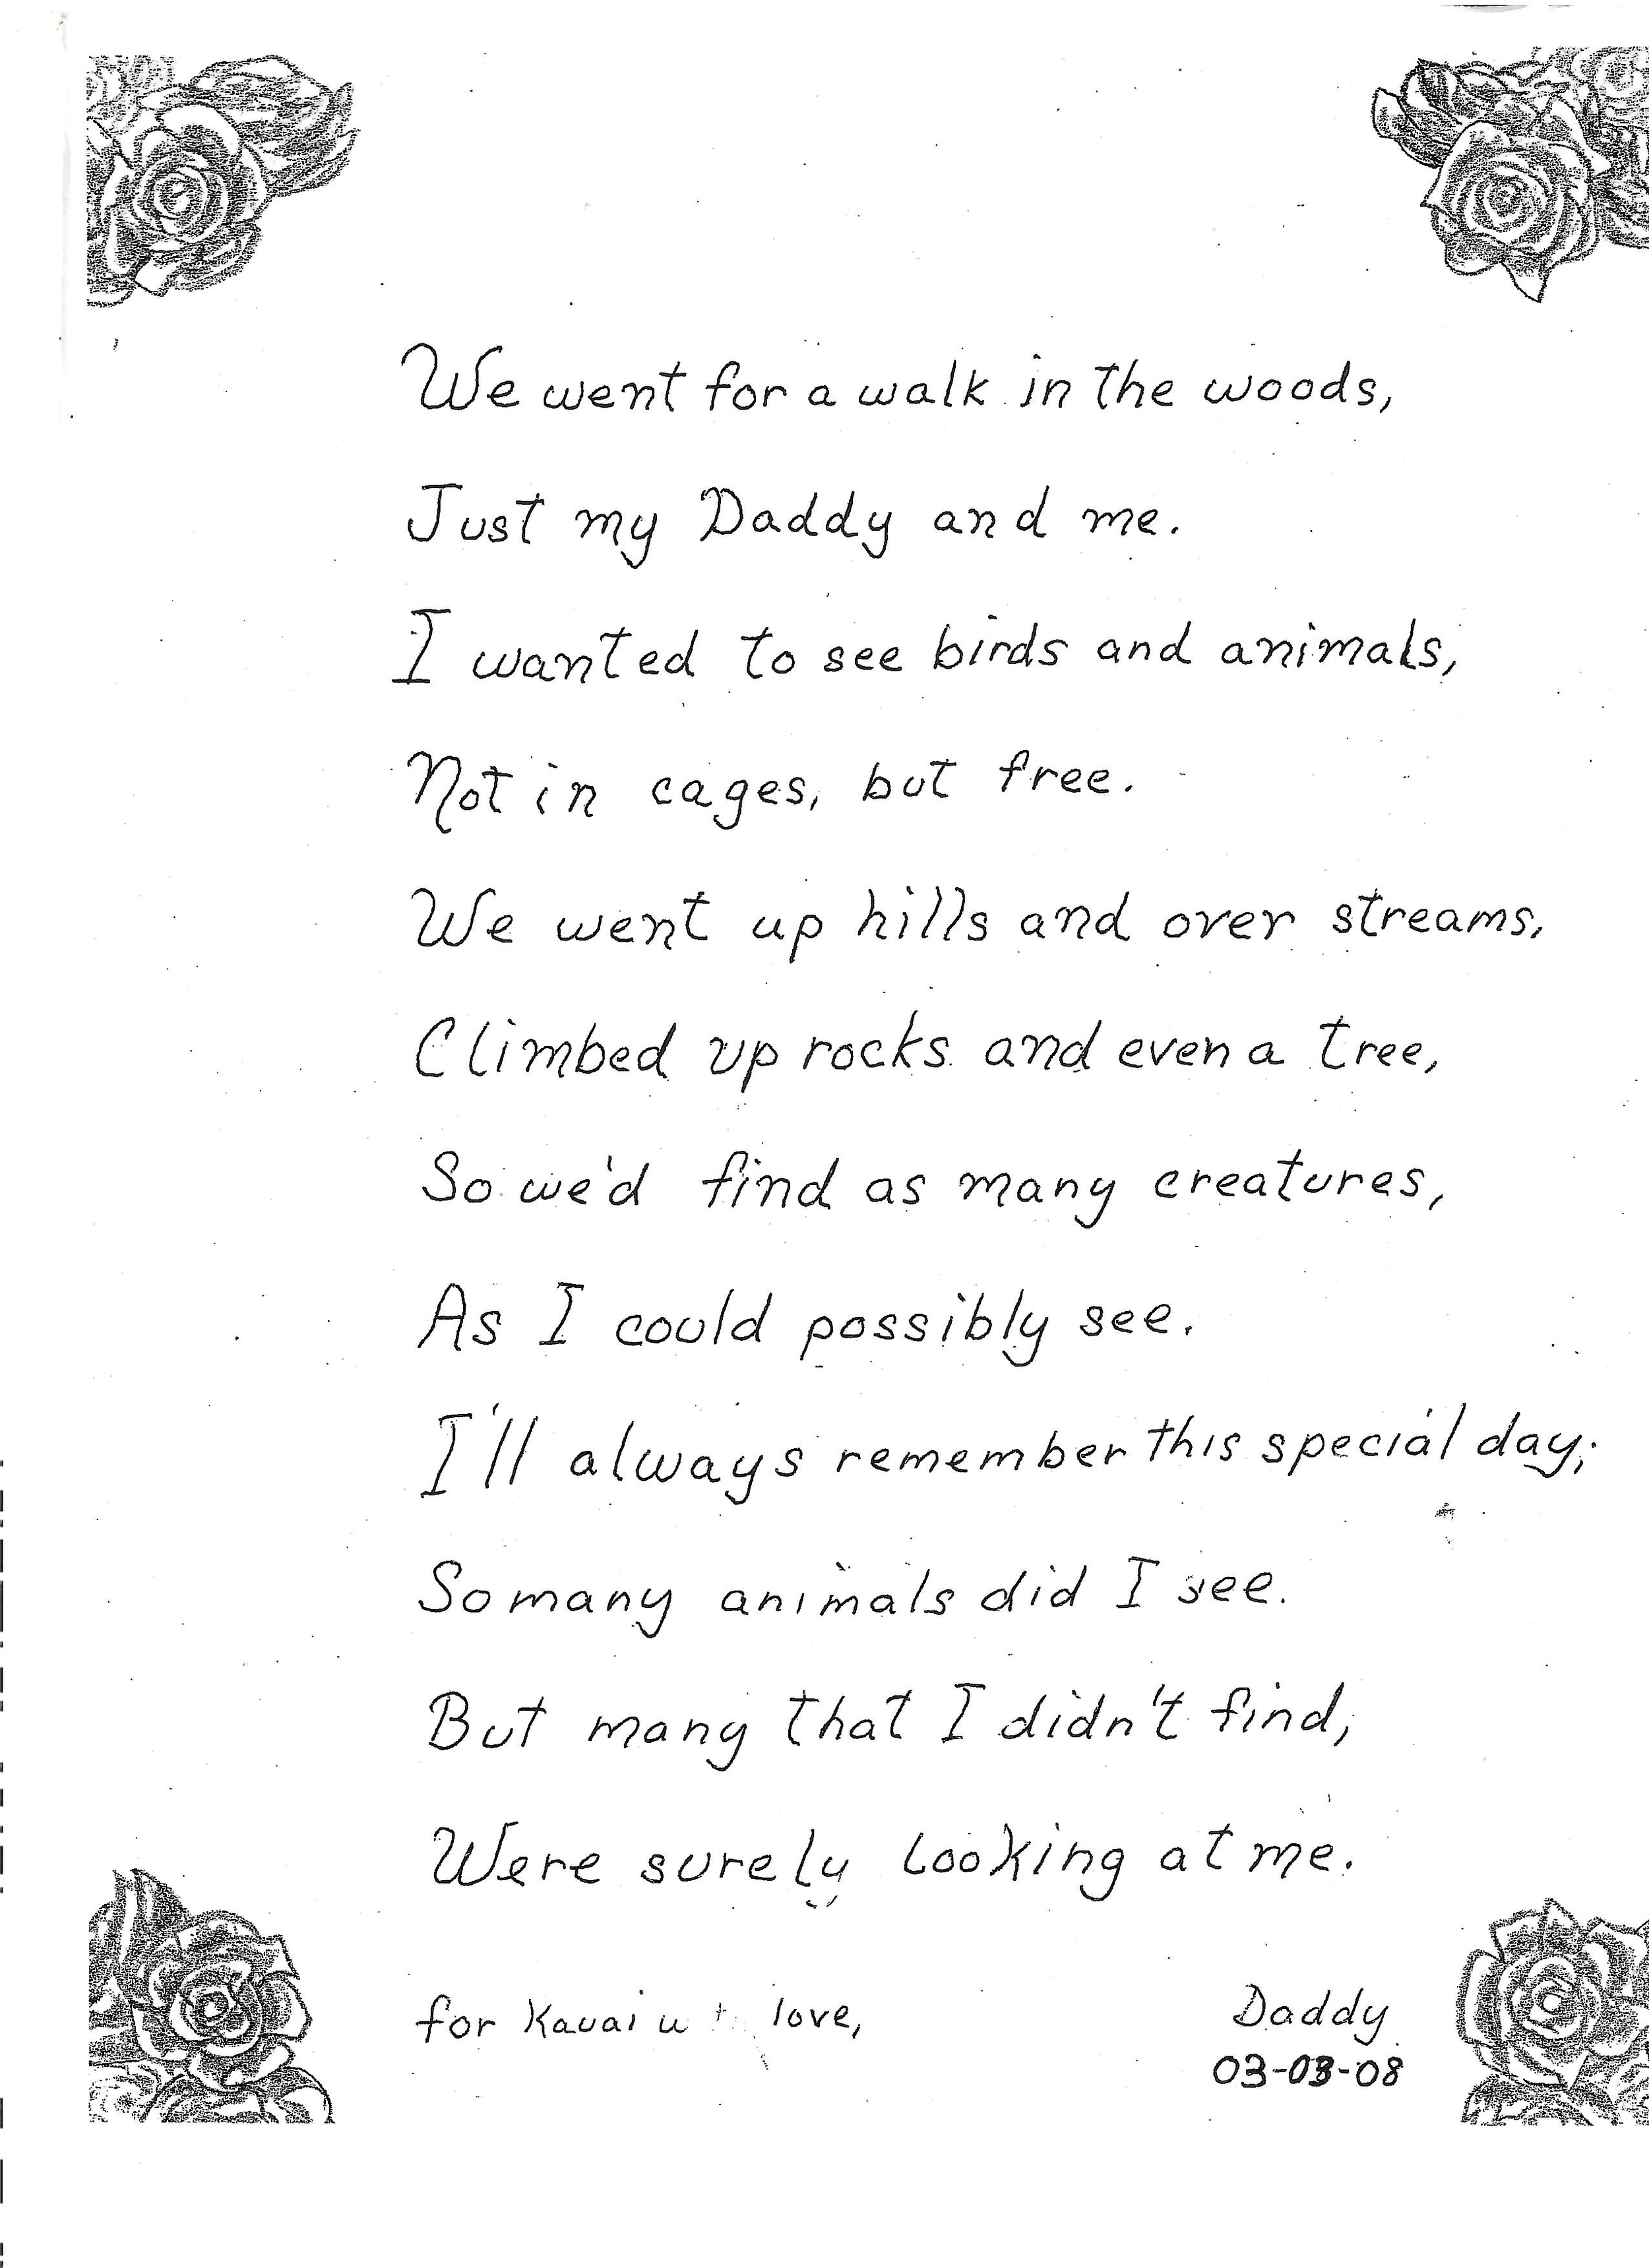 We went for a walk in the woods,
Just my Daddy and me.
I wanted to see birds and animals,
Not in cages, but free.
We went up hills and over streams,
Climbed up rocks and even a tree,
So we'd find as many creatures,
As I could possibly see.
I'll always remember this special day;
So many animals did I see.
But many that I didn't find,
Were surely looking at me.
for Kauai love,
Daddy
03-03-08